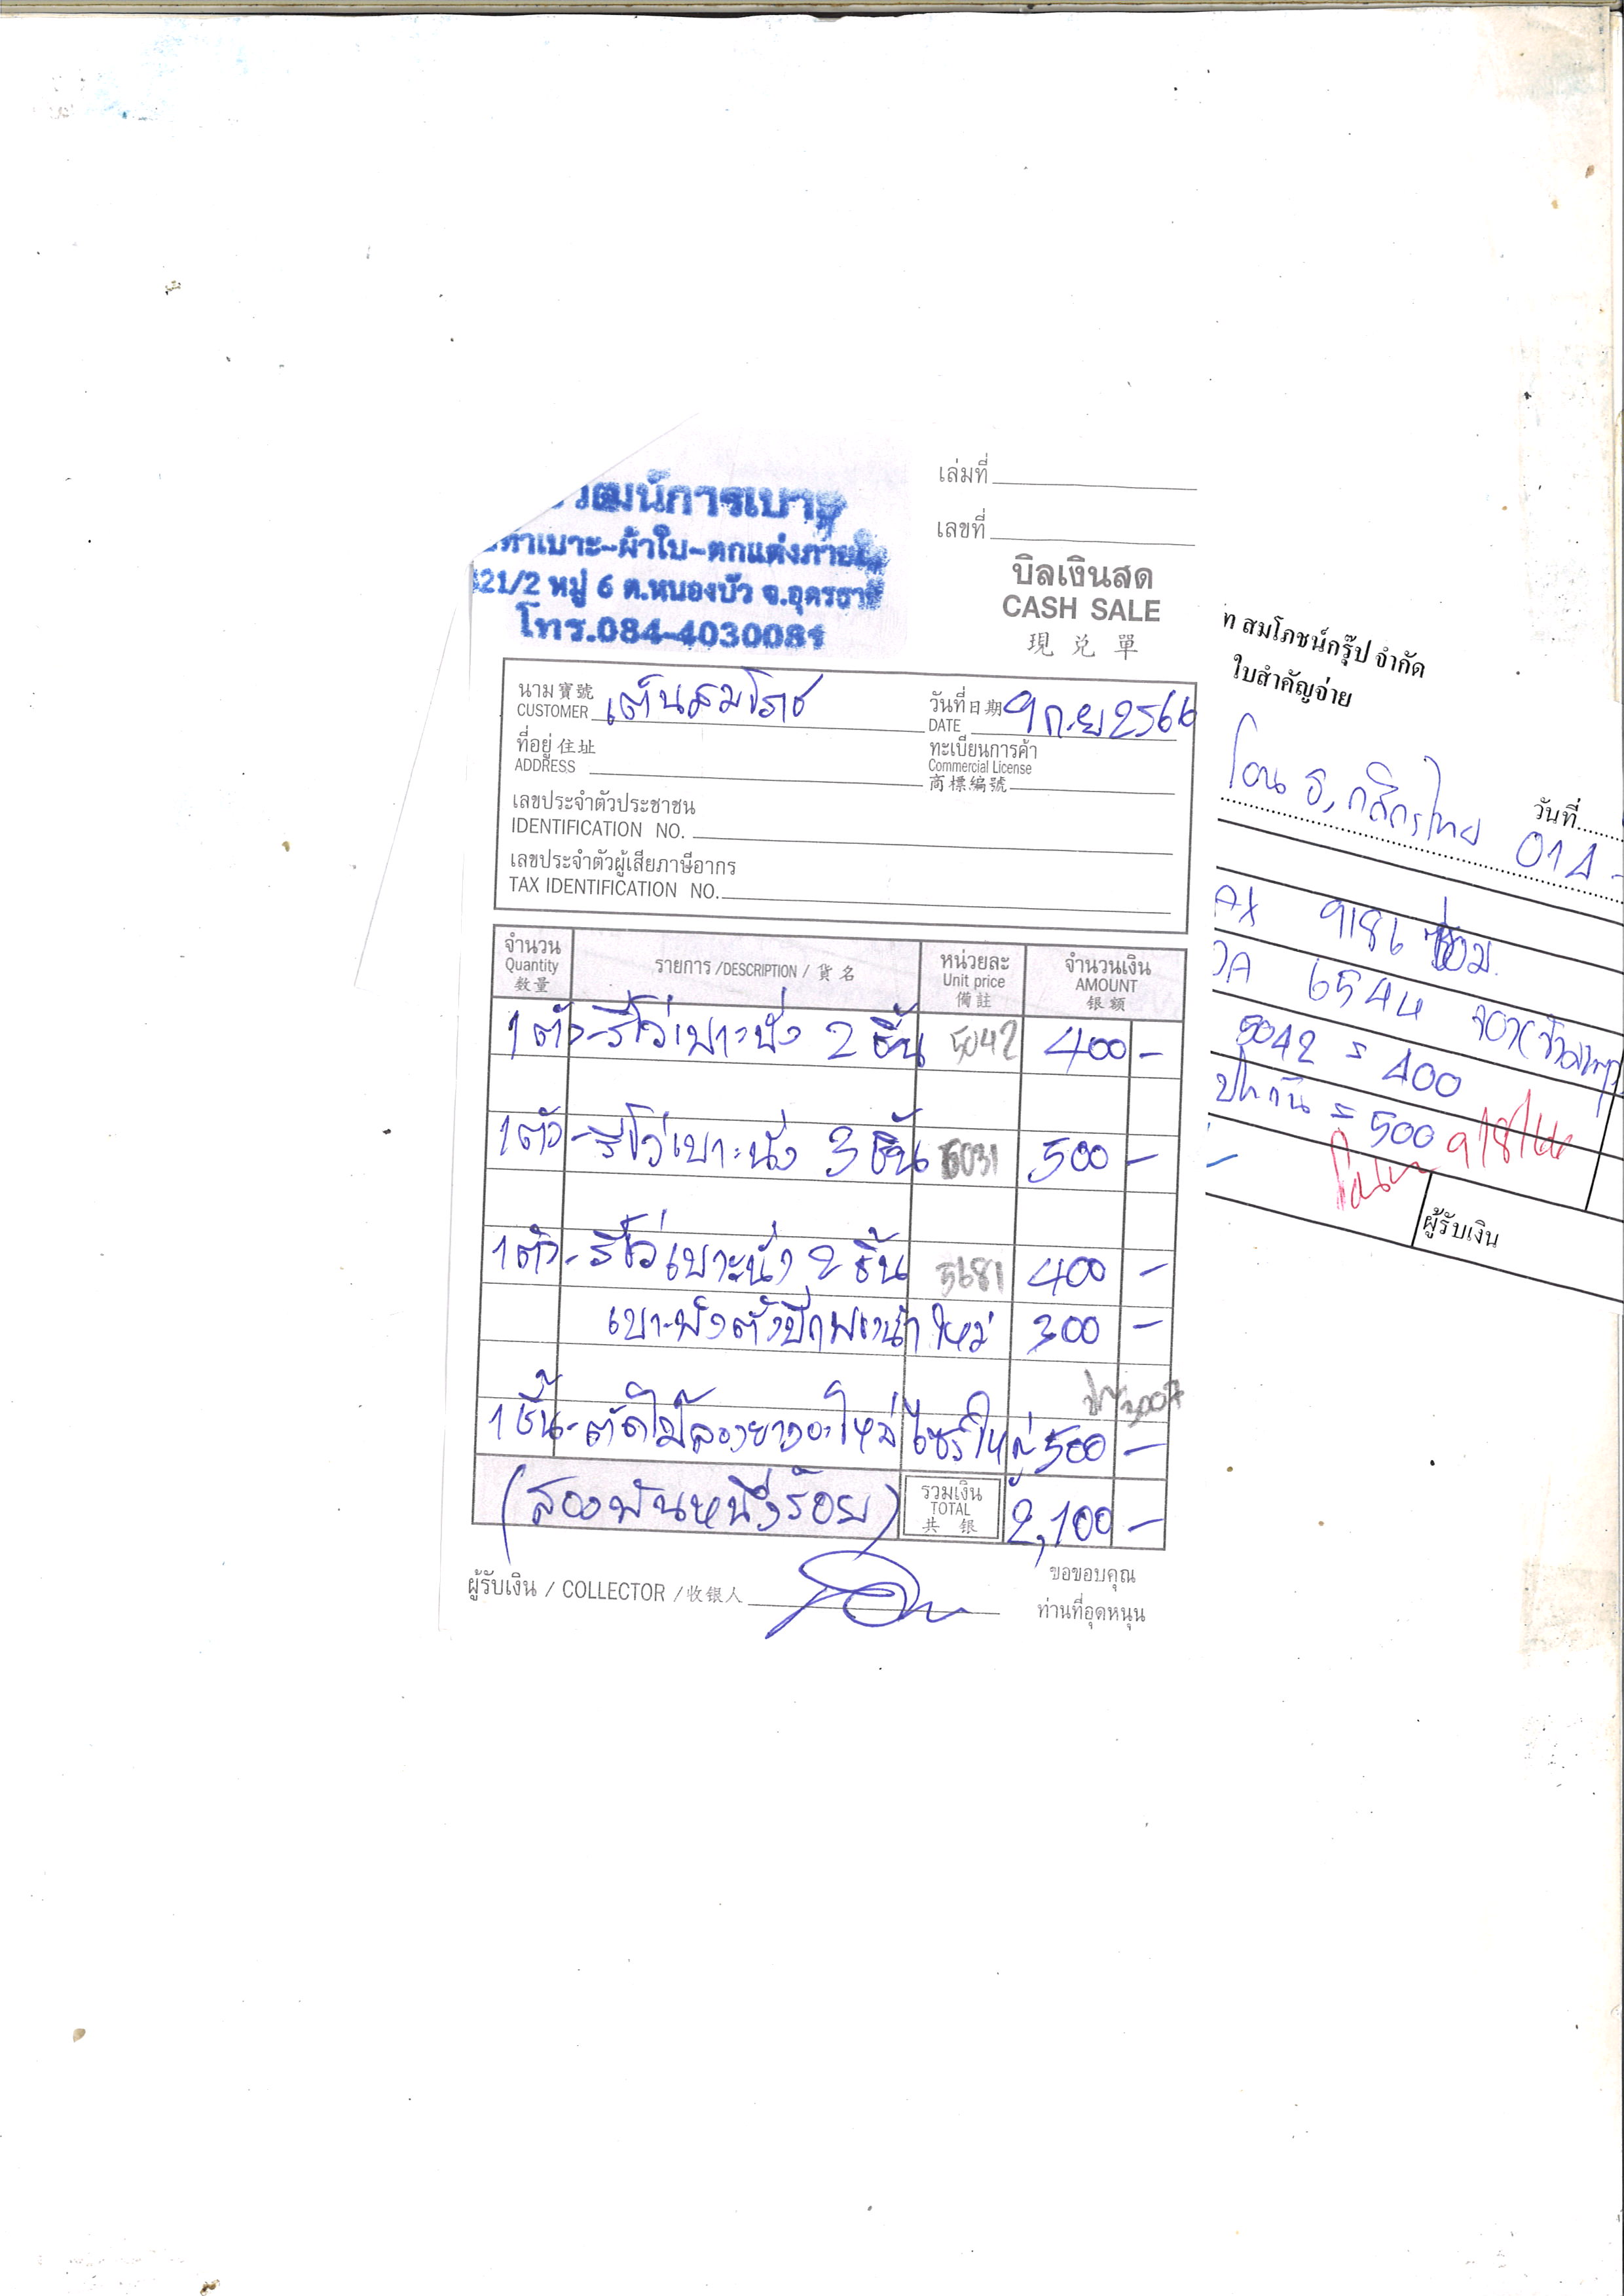 วัฒน์การเบาะ
ทำเบาะ-ผ้าใบ-ตกแต่งภายใน
321/2 หมู่ 6 ต.หนองบัว จ.อุดรธานี
โทร.084-4030081
เล่มที่
เลขที่
บิลเงินสด
CASH SALE
現兌單
นาม 寶號 เต็นสมโภช
CUSTOMER
วันที่ 日期 9 ก.ย 2566
DATE
ที่อยู่ 住址
ADDRESS
ทะเบียนการค้า
Commercial License
商標編號
เลขประจำตัวประชาชน
IDENTIFICATION NO.
เลขประจำตัวผู้เสียภาษีอากร
TAX IDENTIFICATION NO.
จำนวน Quantity 数量
รายการ /DESCRIPTION / 貨名
หน่วยละ Unit price 備註
จำนวนเงิน AMOUNT 银額
1 ตัว - รีโว่เบาะนั่ง 2 ชิ้น 5042 400 -
1 ตัว - รีโว่เบาะนั่ง 3 ชิ้น 5031 500 -
1 ตัว - รีโว่เบาะนั่ง 2 ชิ้น 5681 400 -
300 -
3007
1 ชิ้น - 500 -
(สองพันหนึ่งร้อย) รวมเงิน TOTAL 共银 2,100 -
ผู้รับเงิน / COLLECTOR / 收银人
ขอขอบคุณ
ท่านที่อุดหนุน
ท สมโภชน์กรุ๊ป จำกัด
ใบสำคัญจ่าย
วันที่
โอน ธ, กสิกรไทย 014 -
9186 ซ่อม
6544
5042 = 400
= 500
9/8/66
ผู้รับเงิน